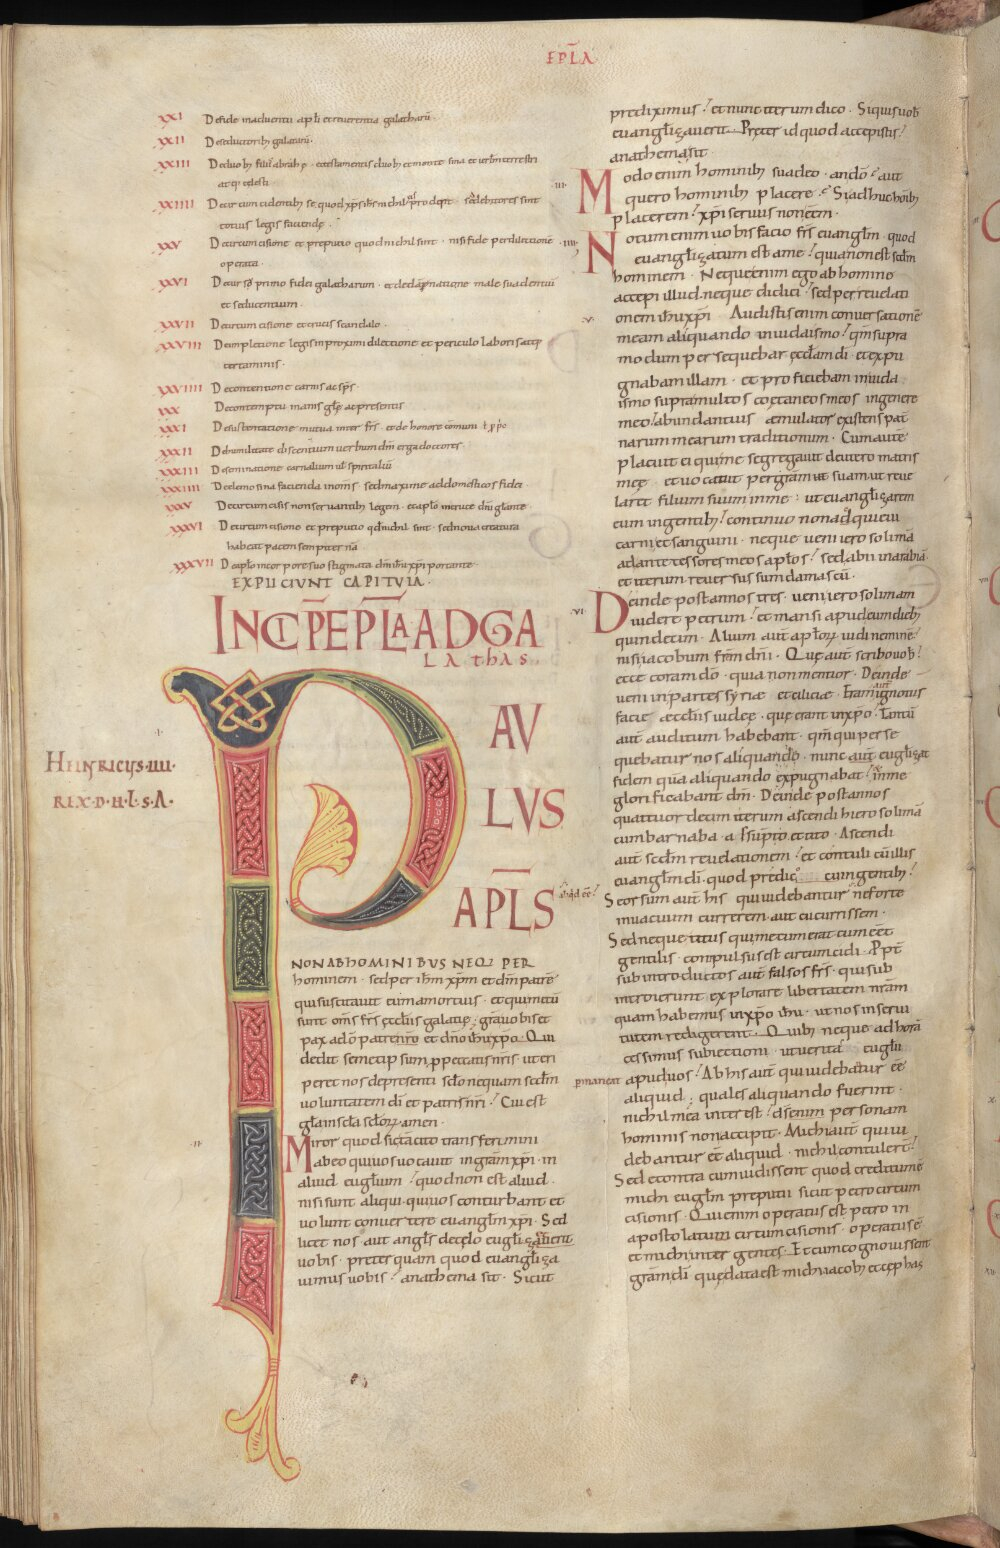 EPL̄A
XXI De fide in adventu apłi et reverentia galatharū.
XXII De seductorib; galatarū.
XXIII De duob; filiis abrahę. et testamentis duob; et monte sina et urbe terrestri
atq; cęlesti.
XXIIII De circumcidentib; se quod xp̄s
totius legis faciendę.
XXV De circumcisione et preputio quod nichil sint. nisi fide per dilectionē
operata.
XXVI De cursu primo fidei galatharum. et de damnatione male suadentiū
et seducentium.
XXVII De circumcisione et crucis scandalo.
XXVIII De impletione legis in proximi dilectione et periculo
certaminis.
XXVIIII De contentione carnis ac sp̄s.
XXX De contemptu inanis glę ac presentis
XXXI De sustentatione mutua inter fr̄s. et de honore cōmuni
XXXII De humilitate discentium verbum dn̄i erga doctores.
XXXIII De seminatione carnalium ul̄ spiritaliū
XXXIIII De elemosina facienda in om̄s. sed maxime ad domesticos fidei.
XXXV De circumcisis non servantib; legem. et aplo in cruce dn̄i gl̄ante.
XXXVI De circumcisione et preputio qd̄ nichil sint. sed nova creatura
habeat pacem sempiternā
XXXVII De aplo in corpore suo stigmata dn̄i ihu xp̄i portante.
EXPLICIUNT CAPITULA.
INCIP̄ EPL̄A AD GA
Lathas.
PAV
LVS
APL̄S
HEINRICUS·IIII·
REX·D·H·L·S·A·
NON AB HOMINIBUS NEQ; PER
hominem. sed per ihm xp̄m et dm̄ patrē
qui suscitavit eum a mortuis. et qui mecū
sunt om̄s fr̄s ęccłiis galatię; gr̄a vobis et
pax a dō patre nr̄o et dn̄o ihu xp̄o. Qui
dedit semetipsum p peccatis nr̄is ut eri
peret nos de presenti sclo nequam scdm̄
voluntatem dī et patris nr̄i? Cui est
gl̄a in scl̄a scl̄oꝝ. amen.
·II· Miror quod sic tā cito transferimini
ab eo qui vos vocavit in gr̄am xp̄i. in
aliud eugl̄ium? quod non est aliud.
nisi sunt aliqui. qui vos conturbant et
volunt convertere evangl̄m xp̄i. Sed
licet nos. aut angl̄s de cęlo eugl̄izaverit
vobis. preterquam quod evangl̄iza
vimus vobis? anathema sit. Sicut
prediximus? et nunc iterum dico. Si quis vob̄
evangl̄izaverit. Preter id quod accepistis?
anathema sit.
·III· Modo enim hominib; suadeo. an dō? aut
quero hominib; placere? Si adhuc hōib;
placerem? xp̄i servus non eēm.
·IIII· Notum enim vobis facio fr̄s evangl̄m. quod
evangl̄izatum est a me? quia non est scdm̄
hominem. Neque enim ego ab homine
accepi illud. neque didici? sed per revelati
·V· onem ihu xp̄i. Audistis enim conversationē
meam aliquando in iudaismo? qm̄ supra
modum persequebar ęccl̄am dī. et expu
gnabam illam. et proficiebam in iuda
ismo supra multos coetaneos meos in genere
meo? abundantius aemulator existens pat̄
narum mearum traditionum. Cum autē
placuit ei qui me segregavit de utero matris
meę. et vocavit per gr̄am suam ut reve
laret filium suum in me: ut evangl̄izarem
eum in gentib;? continuo non adquievi
carni et sanguini. neque veni ierosolimā
ad antecessores meos apl̄os? sed abii in arabiā
et iterum reversus sum damascū.
·VI· Deinde post annos tres. veni ierosolimam
videre petrum? et mansi apud eum dieb;
quindecim. Alium aut̄ apl̄oꝝ vidi neminē?
nisi iacobum frm̄ dn̄i. Quę aut̄ scribo vob̄?
ecce coram dō. quia non mentior. Deinde
veni in partes syriae et ciliciae. Eram aut̄ ignotus
facie aecclīis iudeę. quę erant in xp̄o. Tantū
aut̄ auditum habebant. qm̄ qui perse
quebatur nos aliquando. nunc aut̄ eugl̄izat
fidem quā aliquando expugnabat? in me
glorificabant dm̄. Deinde post annos
quattuordecim iterum ascendi hierosolimā
cum barnaba assūpto et tito. Ascendi
aut̄ scdm̄ revelationem? et contuli cū illis
evangl̄m dī. quod predico in gentib;?
Seorsum aut̄ his qui videbantur ne forte
in vacuum currerem aut cucurrissem.
Sed neque titus qui mecum erat cum eēt
gentilis. compulsus est circumcidi. Ppt̄
subintroductos aut̄ falsos fr̄s. qui sub
introierunt explorare libertatem nr̄am
quam habemus in xp̄o ihu. ut nos in servi
tutem redigerent. Quib; neque ad horā
cessimus subiectioni. ut veritas eugl̄ii
pmaneat apud vos? Ab his aut̄ qui videbatur eē
aliquid; quales aliquando fuerint.
nichil mea interest? ds̄ enim personam
hominis non accipit. Michi aut̄ qui vi
debantur eē aliquid. nichil contulert̄?
Sed econtra cum vidissent quod creditum ē
michi eugl̄m preputii sicut petro circum
cisionis. Qui enim operatus est petro in
apostolatum circumcisionis. operatus ē
et michi inter gentes. Et cum cognovissent
gr̄am dī quę data est michi iacob; et cephas